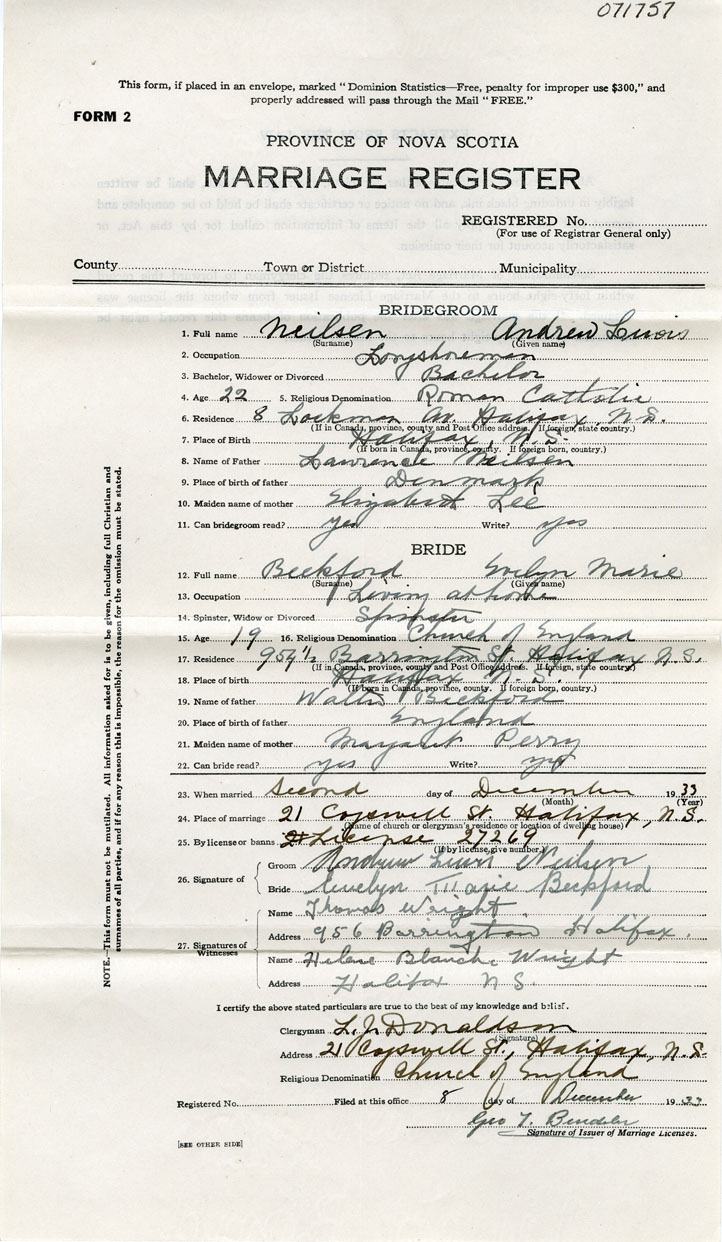 071757
This form, if placed in an envelope, marked "Dominion Statistics—Free, penalty for improper use $300," and
properly addressed will pass through the Mail "FREE."
FORM 2
PROVINCE OF NOVA SCOTIA
MARRIAGE REGISTER
REGISTERED No.
(For use of Registrar General only)
County Town or District Municipality
BRIDEGROOM
1. Full name Neilsen Andrew Lewis
(Surname) (Given name)
2. Occupation Longshoreman
3. Bachelor, Widower or Divorced Bachelor
4. Age 22 5. Religious Denomination Roman Catholic
6. Residence 8 Lockman Av. Halifax, N.S.
(If in Canada, province, county and Post Office address. If foreign, state country.)
7. Place of Birth Halifax, N.S.
(If born in Canada, province, county. If foreign born, country.)
8. Name of Father Lawrence Neilsen
9. Place of birth of father Denmark
10. Maiden name of mother Elizabeth Lee
11. Can bridegroom read? yes Write? yes
BRIDE
12. Full name Beckford Evelyn Marie
(Surname) (Given name)
13. Occupation Living at home
14. Spinster, Widow or Divorced Spinster
15. Age 19 16. Religious Denomination Church of England
17. Residence 954½ Barrington St. Halifax N.S.
(If in Canada, province, county and Post Office address. If foreign, state country)
18. Place of birth Halifax N.S.
(If born in Canada, province, county. If foreign born, country.)
19. Name of father Walter Beckford
20. Place of birth of father England
21. Maiden name of mother Margaret Perry
22. Can bride read? yes Write? yes
23. When married Second day of December 1933
(Month) (Year)
24. Place of marriage 21 Cogswell St. Halifax, N.S.
(Name of church or clergyman's residence or location of dwelling house)
25. By license or banns License 27269
(If by license, give number)
26. Signature of Groom Andrew Lewis Neilsen
Bride Evelyn Marie Beckford
27. Signatures of Witnesses
Name Thomas Wright
Address 956 Barrington Halifax.
Name Helene Blanche Wright
Address Halifax N S.
I certify the above stated particulars are true to the best of my knowledge and belief.
Clergyman L. J. Donaldson
(Signature)
Address 21 Cogswell St., Halifax, N.S.
Religious Denomination Church of England
Registered No. Filed at this office 8 day of December 1933
Geo T.
Signature of Issuer of Marriage Licenses.
[SEE OTHER SIDE]
NOTE.—This form must not be mutilated. All information asked for is to be given, including full Christian and
surnames of all parties, and if for any reason this is impossible, the reason for the omission must be stated.